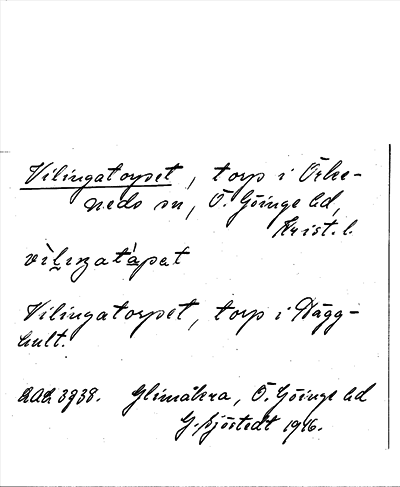 Vilingatorpet, torp i Örke-
neds sn, Ö. Göinge hd,
Krist. l.
vìliŋatàpat
Vilingatorpet, torp i Hägg-
hult.
Glimåkra, Ö. Göinge hd
G. Sjöstedt 1926.